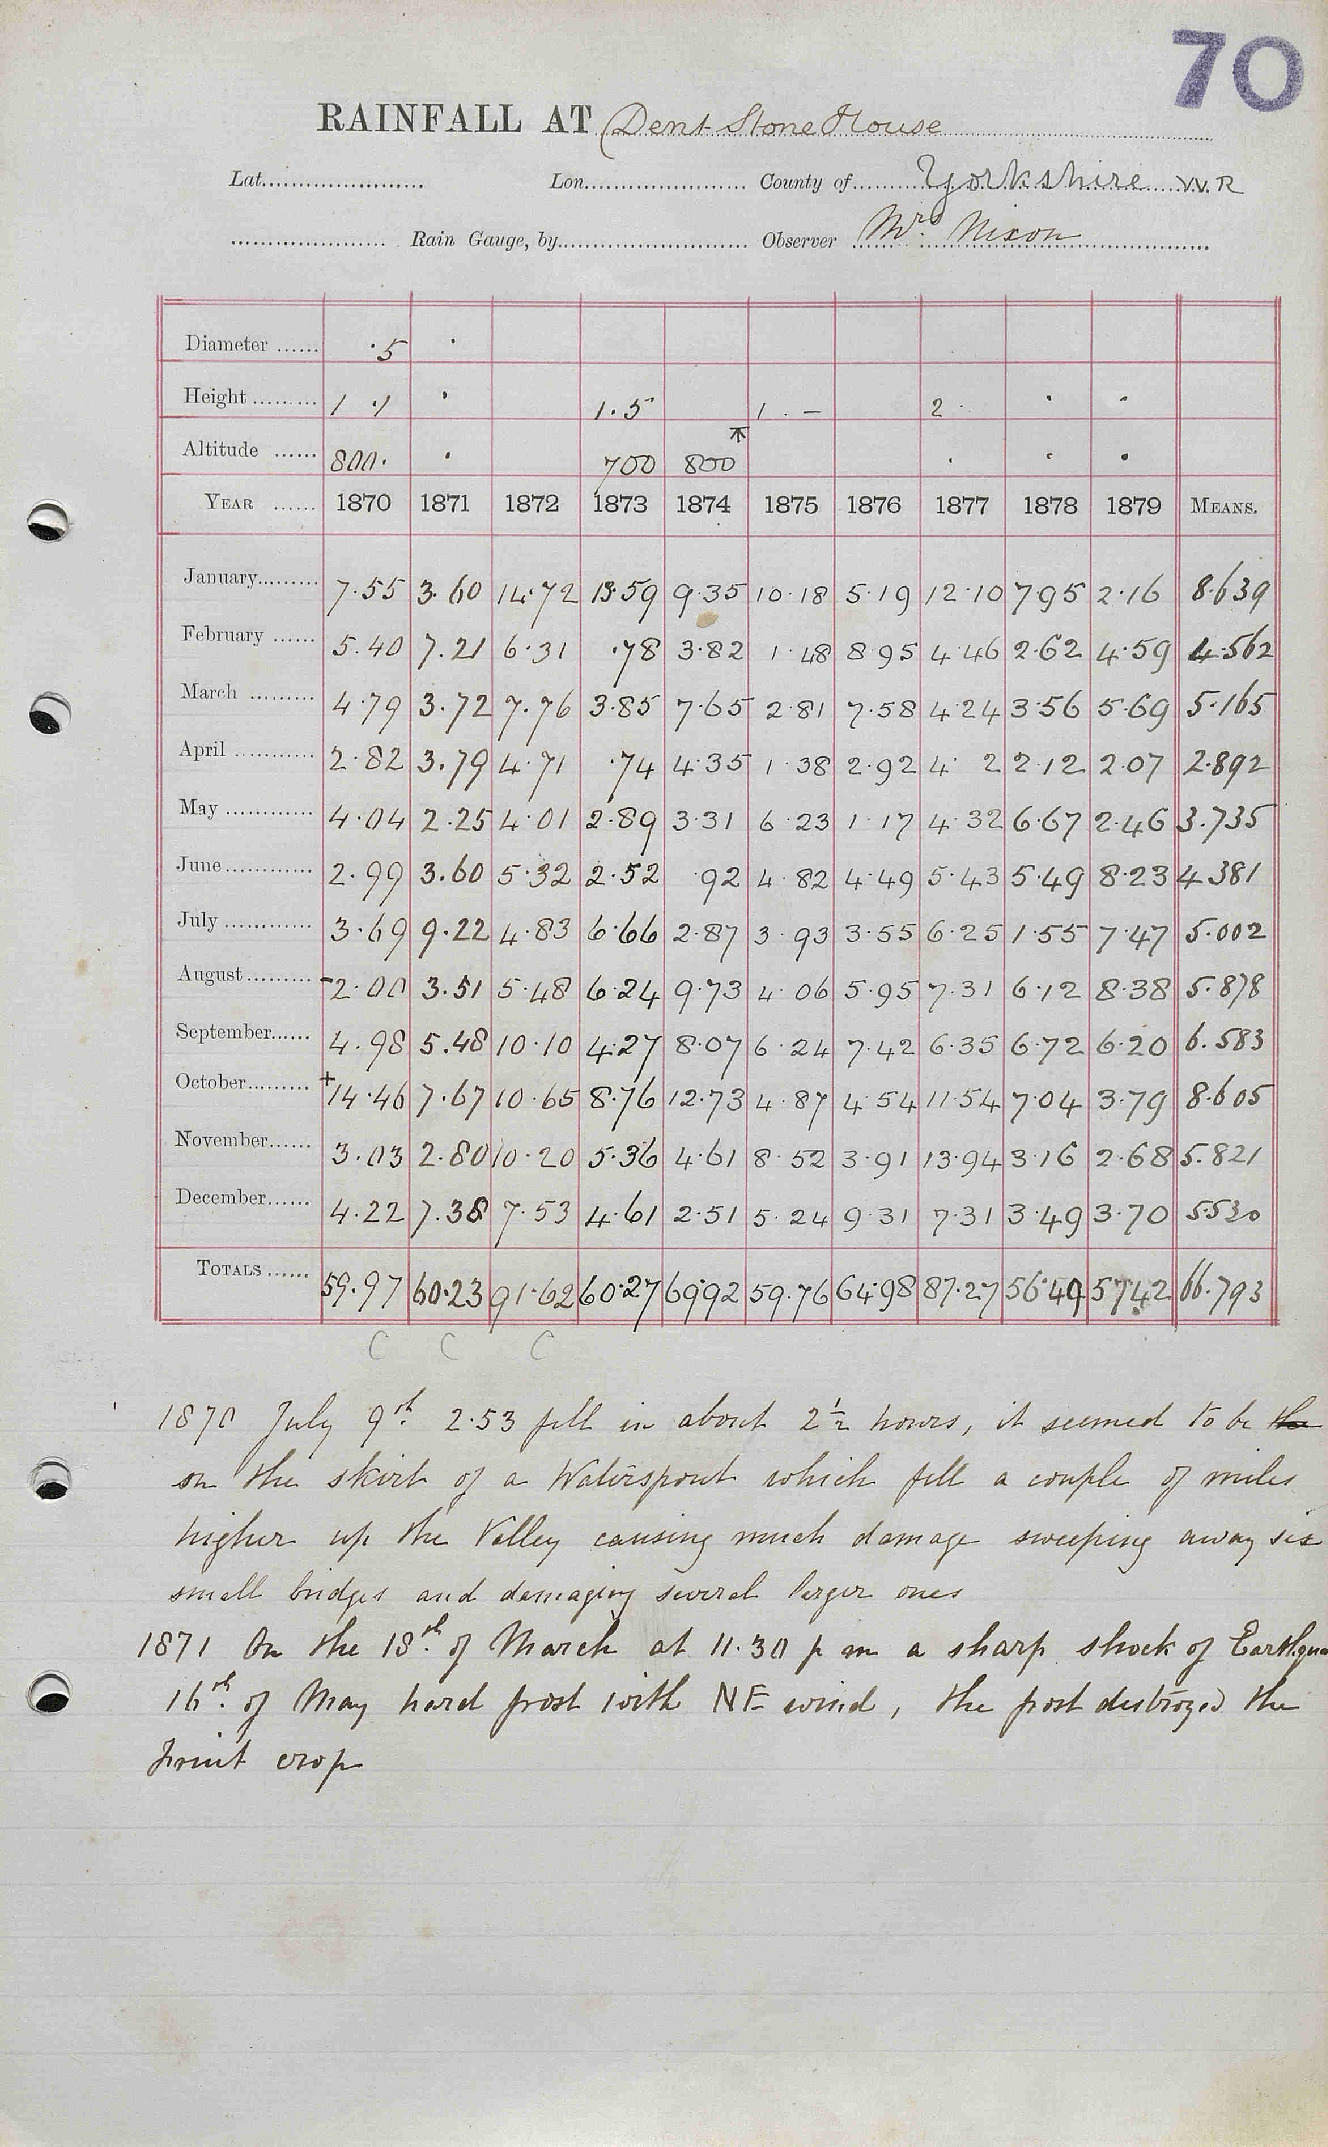 70
RAINFALL AT Dent Stone House
Lat. Lon. County of Yorkshire W.R
Rain Gauge, by Observer Mrs Nixon
Diameter ·5 ·
Height 1 ·1 · 1·5 1 · — 2 · · ·
Altitude 800· · 700 800 · · ·
YEAR 1870 1871 1872 1873 1874 1875 1876 1877 1878 1879 MEANS.
January 7·55 3·60 14·72 13·59 9·35 10·18 5·19 12·10 7 95 2·16 8·639
February 5·40 7·21 6·31 ·78 3·82 1·48 8 95 4·46 2·62 4·59 4·562
March 4·79 3·72 7·76 3·85 7·65 2·81 7·58 4·24 3·56 5·69 5·165
April 2·82 3·79 4·71 ·74 4·35 1·38 2·92 4· 2 2·12 2·07 2·892
May 4·04 2·25 4·01 2·89 3·31 6·23 1·17 4·32 6·67 2·46 3·735
June 2·99 3·60 5·32 2·52 ·92 4·82 4·49 5·43 5·49 8·23 4 381
July 3·69 9·22 4·83 6·66 2·87 3·93 3·55 6·25 1·55 7·47 5·002
August -2·00 3·51 5·48 6·24 9·73 4·06 5·95 7·31 6·12 8·38 5·878
September 4·98 5·48 10·10 4·27 8·07 6·24 7·42 6·35 6·72 6·20 6·583
October +14·46 7·67 10·65 8·76 12·73 4·87 4·54 11·54 7·04 3·79 8·605
November 3·03 2·80 10·20 5·36 4·61 8·52 3·91 13·94 3·16 2·68 5·821
December 4·22 7·38 7·53 4·61 2·51 5·24 9·31 7·31 3·49 3·70 5·530
TOTALS 59·97 60·23 91·62 60·27 69·92 59·76 64·98 87·27 56·49 57·42 66·793
C C C
1870 July 9th 2·53 fell in about 2½ hours, it seemed to be the
on the skirt of a Waterspout which fell a couple of miles
higher up the Valley causing much damage sweeping away six
small bridges and damaging several larger ones
1871 On the 18th of March at 11·30 p m a sharp shock of Earthqua
16th of May hard frost with NE wind, the frost destroyed the
fruit crop